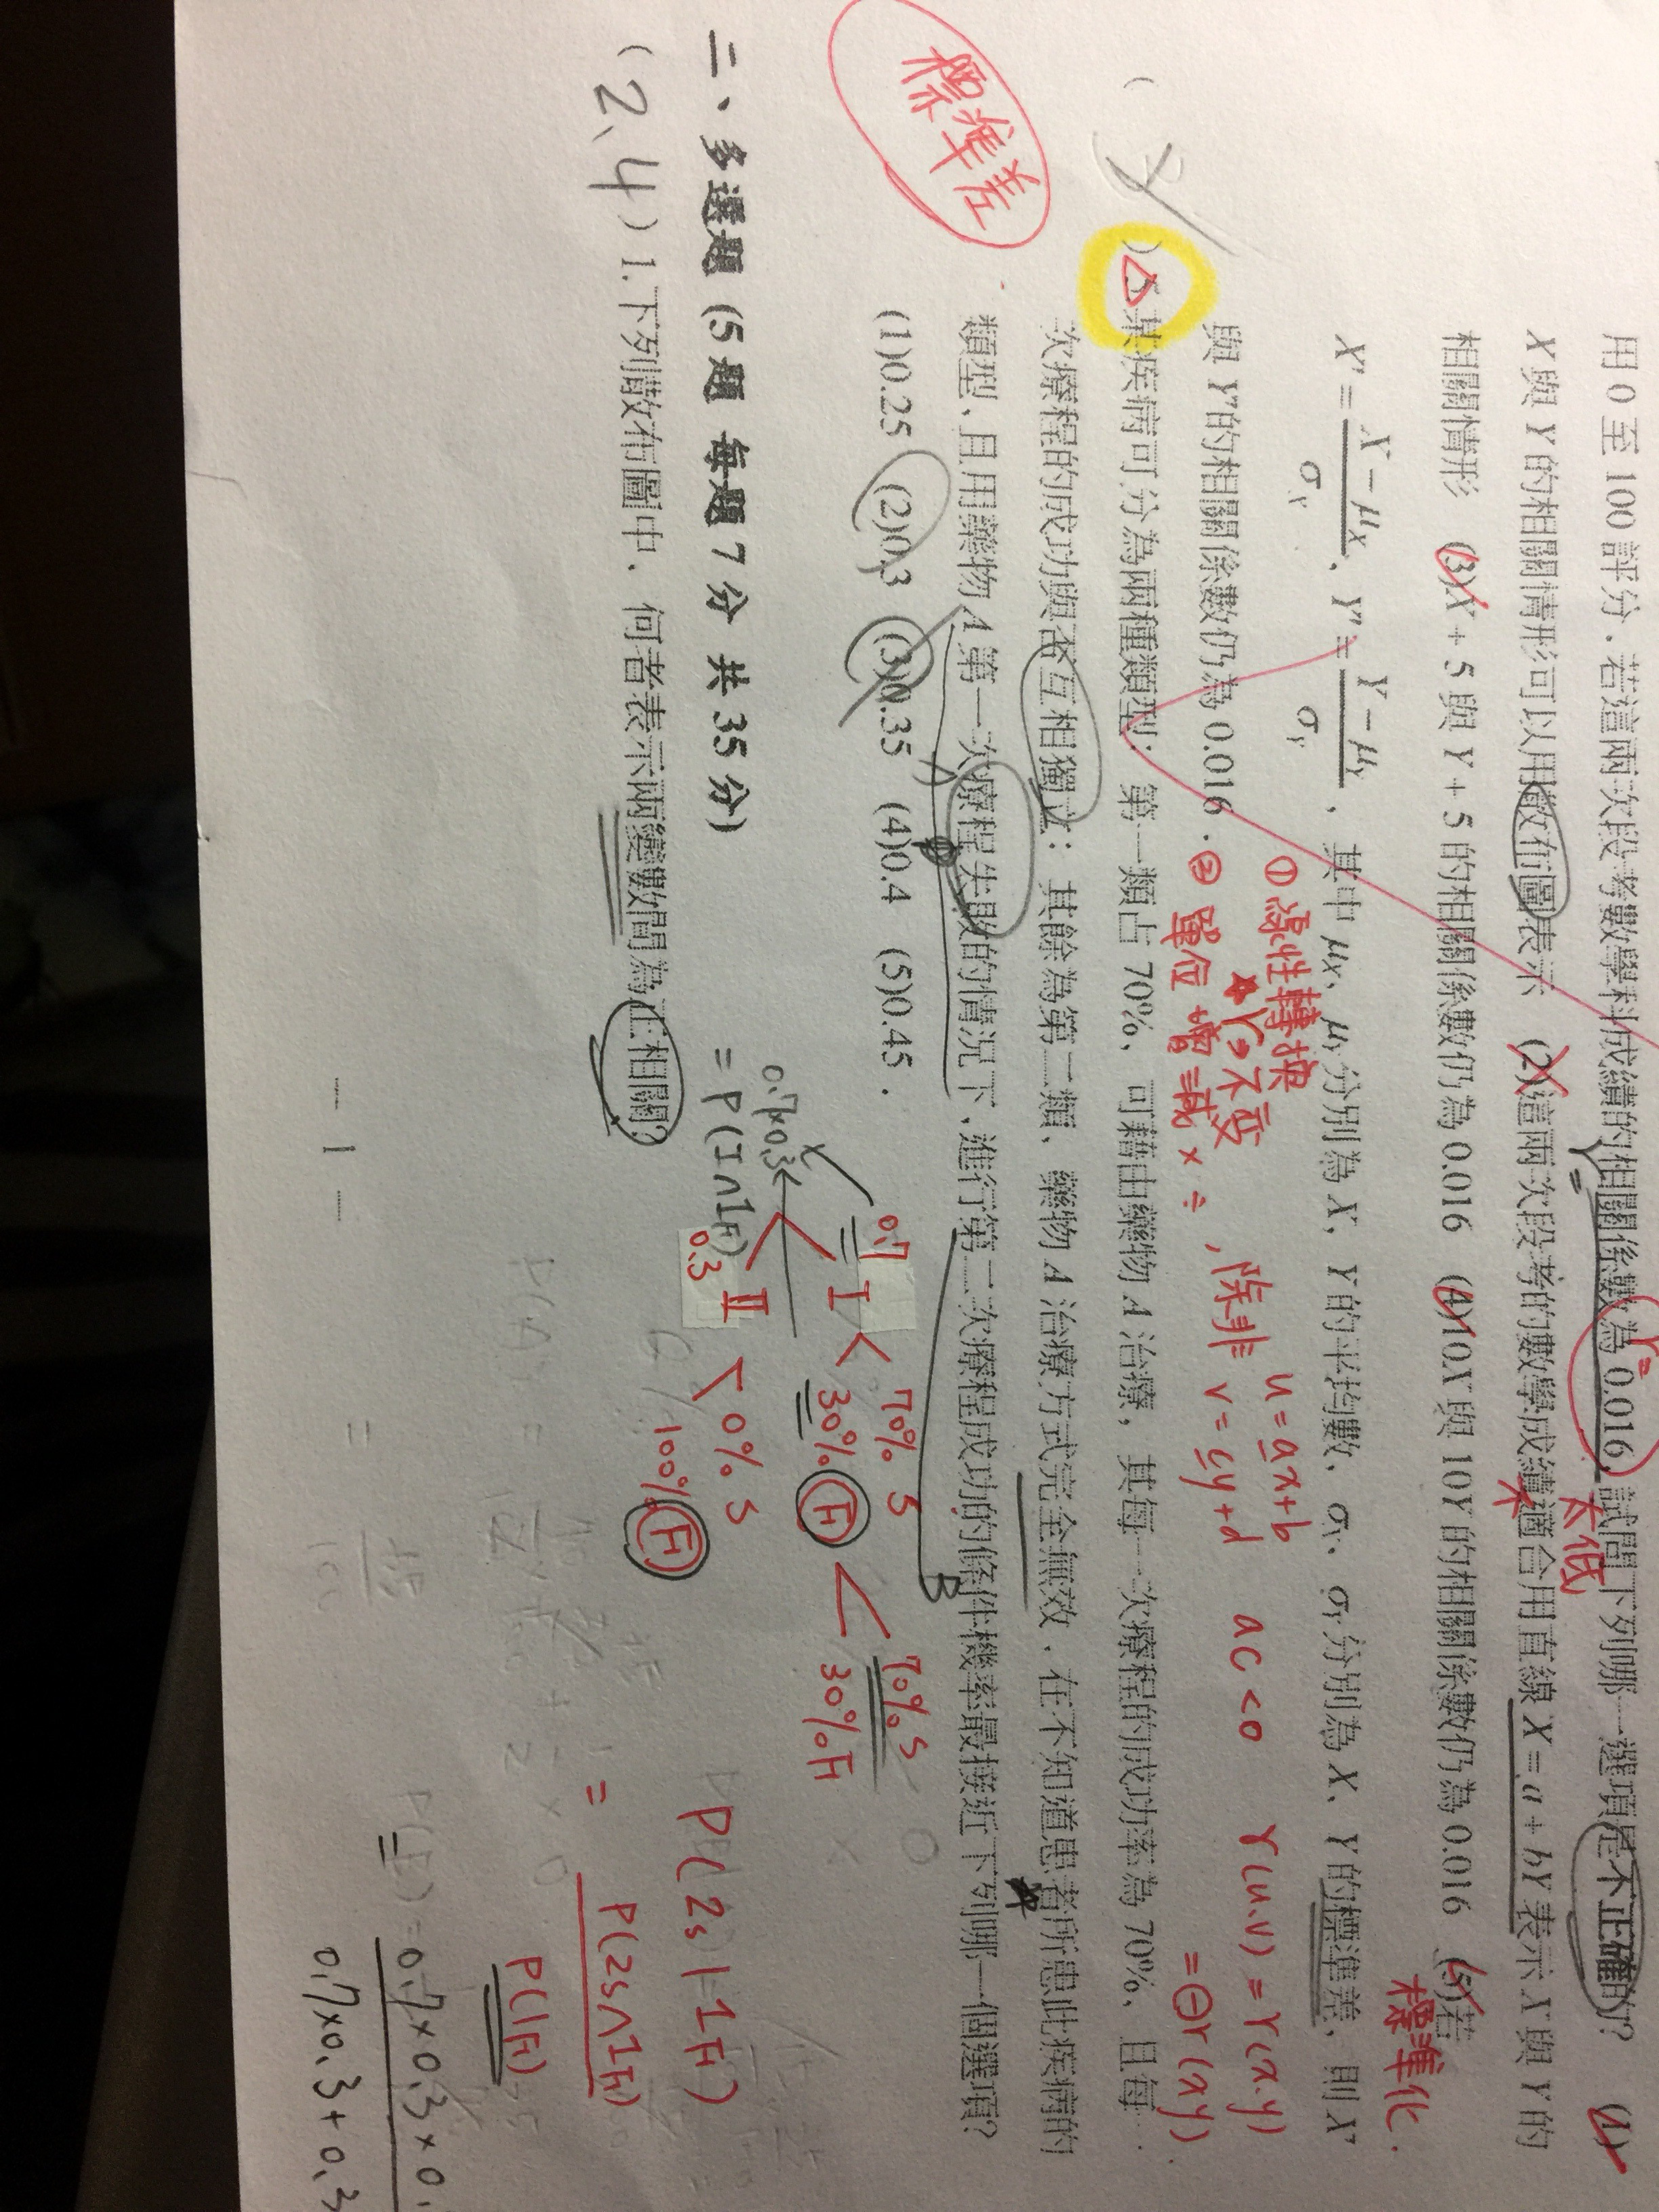 用 0 至 100 評分．若這兩次段考數學科成績的相關係數為 0.016，試問下列哪一選項是不正確的？ (1)
X 與 Y 的相關情形可以用散布圖表示 (2)這兩次段考的數學成績適合用直線 X = a + bY 表示 X 與 Y 的
相關情形 (3)X + 5 與 Y + 5 的相關係數仍為 0.016 (4)10X 與 10Y 的相關係數仍為 0.016 (5)若
X' = (X − μX)/σX，Y' = (Y − μY)/σY，其中 μX，μY 分別為 X，Y 的平均數，σX，σY 分別為 X，Y 的標準差，則 X'
與 Y' 的相關係數仍為 0.016．
r =
太低
不
標準化
① 線性轉換
☆ r 不變
② 單位 增 減 × ÷ ，除非
u = ax+b
v = cy+d
ac < 0
r(u.v) = r(x.y)
= ⊖r(x.y)
標準差
5.某疾病可分為兩種類型：第一類占 70%，可藉由藥物 A 治療，其每一次療程的成功率為 70%，且每一
次療程的成功與否互相獨立；其餘為第二類，藥物 A 治療方式完全無效．在不知道患者所患此疾病的
類型，且用藥物 A 第一次療程失敗的情況下，進行第二次療程成功的條件機率最接近下列哪一個選項？
A
B
(1)0.25 (2)0.3 (3)0.35 (4)0.4 (5)0.45．
0.7
I
70% S
30% F
70% S
30% F
0.3
II
0% S
100% F
0.7×0.3
= P(I∩1F)
P(2s|1F)
= P(2s∩1F)
P(1F)
= 0.7×0.3×0.
0.7×0.3+0.3
二、多選題 (5 題 每題 7 分 共 35 分)
( 2、4 ) 1.下列散布圖中，何者表示兩變數間為正相關？
— 1 —